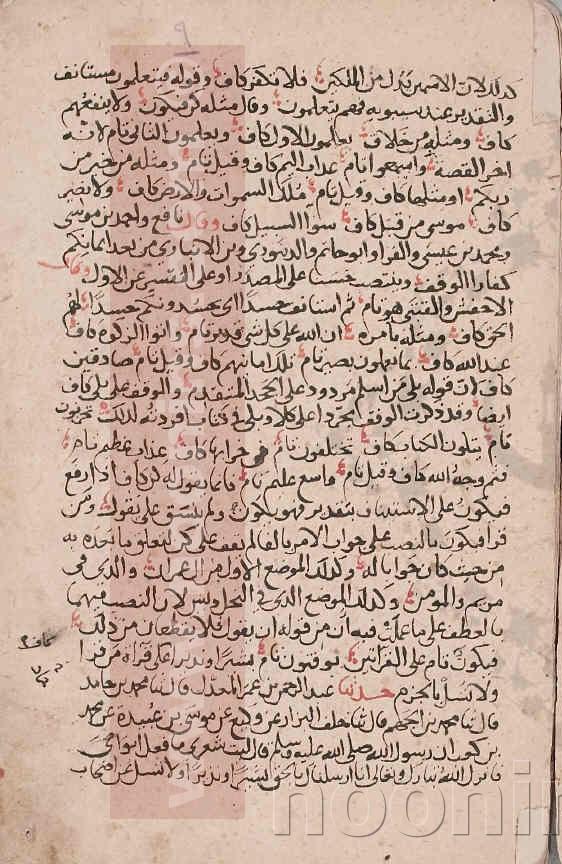 ٩
كذلك لان الاسمين بدل من الملكين فلا تكفر كاف وقوله فيتعلمون مستانف
والتقدير عند سيبويه فهم يتعلمون وقال مثله كن فيكون ولا ينفعهم
كاف ومثله من خلاق يعلمون الاول كاف ويعلمون الثاني تام لانه
اخر القصة واسمعوا تام عذاب اليم كاف وقيل تام ومثله من خير من
ربكم او مثلها كاف وقيل تام ملك السموات والارض كاف ولا نصير
كاف موسى من قبل كاف سوا السبيل كاف وقال نافع واحمد بن موسى
ومحمد بن عيسى والفرا وابو حاتم والدينوري وبن الانباري من بعد ايمانكم
كفارا الوقف وينتصب حسدا على المصدر او على التفسير عن الاول وقال
الاخفش والقتبي هو تام ثم استانف حسدا اي يحسدونكم حسدا لهم
الحق كاف ومثله بامره ان الله على كل شي قدير تام واتوا الزكوة كاف
عند الله كاف بما تعملون بصير تام تلك امانيهم كاف وقيل تام صادقين
كاف لان قوله بلى من اسلم مردود على الجحد المتقدم والوقف على بلى كاف
ايضا وقد ذكرت الوقف مجردا على كلا وبلى في كتاب افردته لذلك يحزنون
تام يتلون الكتاب كاف يختلفون تام في خرابها كاف عذاب عظيم تام
فثم وجه الله كاف وقيل تام واسع عليم تام فانما يقول له كن كاف اذا رفع
فيكون على الاستيناف بتقدير فهو يكون ولم ينسق على يقول ومن
قرا فيكون بالنصب على جواب الامر بالفا لم يقف على كن لتعلق ما بعده به
من حيث كان جوابا له وكذلك الموضع الاول من ال عمران والذي في
مريم والمومن وكذلك الموضع الذي في النحل ويس لان النصب فيهما
بالعطف على ما عملت فيه ان من قوله ان يقول فلا يقطعان من ذلك
فيكون تام على القراتين يوقنون تام بشيرا ونذيرا على قراة من قرا
ولا تسل بالجزم حدثنا عبد الرحمن بن عمر المعدل قال ثنا محمد بن حامد
قال ثنا محمد بن الجهم قال ثنا خلف البزار عن وكيع عن موسى بن عبيدة عن محمد
بن كعب ان رسول الله صلى الله عليه وسلم قال ليت شعري ما فعل ابواي
فانزل الله تبارك وتعالى انا ارسلناك بالحق بشيرا ونذيرا ولا تسل عن اصحاب
noonin